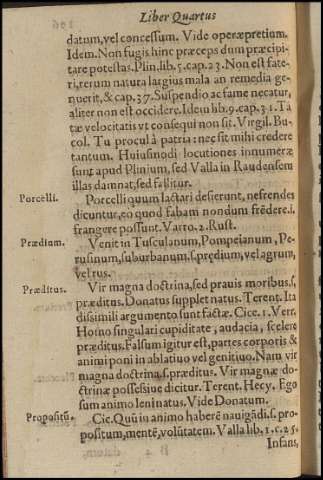 Liber Quartus
datum, vel concessum. Vide operæpretium.
Idem. Non fugis hinc præceps dum præcipi-
tare potestas. Plin. lib. 5. cap. 23. Non est fate-
ri, rerum natura largius mala an remedia ge-
nuerit, & cap. 37. Suspendio ac fame necatur,
aliter non est occidere. Idem lib. 9. cap. 31. Tā
tæ velocitatis vt consequi non sit. Virgil. Bu-
col. Tu procul à patria: nec sit mihi credere
tantum. Huiusmodi locutiones innumeræ
sunt apud Plinium, sed Valla in Raudensem
illas damnat, sed fallitur.
Porcelli. Porcelli quum lactari desierunt, nefrendes
dicuntur, eo quod fabam nondum frēdere .i.
frangere possunt. Varro. 2. Rust.
Prædium. Venit in Tusculanum, Pompeianum, Pe-
rusinum, suburbanum. s. prędium, vel agrum,
vel rus.
Præditus. Vir magna doctrina, sed prauis moribus. s.
præditus. Donatus supplet natus. Terent. Ita
dissimili argumento sunt factæ. Cice. 1. Verr.
Homo singulari cupiditate, audacia, scelere
præditus. Falsum igitur est, partes corporis &
animi poni in ablatiuo vel genitiuo. Nam vir
magna doctrina. s. præditus. Vir magnæ do-
ctrinæ possessiue dicitur. Terent. Hecy. Ego
sum animo leni natus. Vide Donatum.
Propositū. Cic. Quū in animo haberē nauigādi. s. pro-
positum, mentē, volūtatem. Valla lib. 1. c. 25.
Infans,